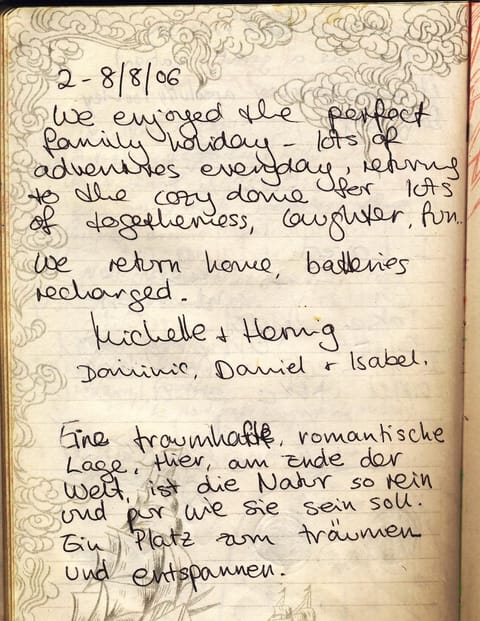 2 - 8/8/06
We enjoyed the perfect
family holiday - lots of
adventures everyday, returning
to the cozy dome for lots
of togetherness, laughter, fun..
We return home, batteries
recharged.
Michelle + Hennig
Dominic, Daniel + Isabel.
Eine traumhafte, romantische
Lage, Hier, am Ende der
Welt, ist die Natur so rein
und pur wie sie sein soll.
Ein Platz zum träumen
und entspannen.